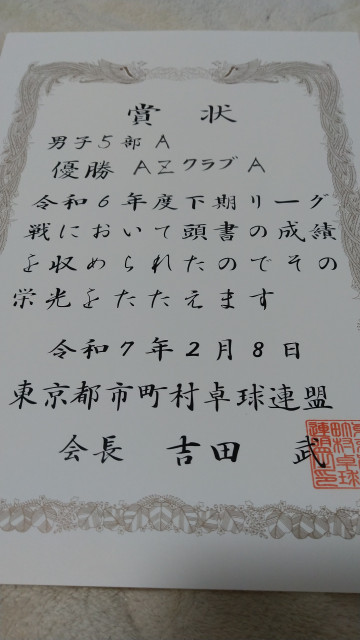 賞状
男子5部A
優勝 AZクラブA
令和6年度下期リーグ
戦において頭書の成績
を収められたのでその
栄光をたたえます
令和7年2月8日
東京都市町村卓球連盟
会長 吉田 武